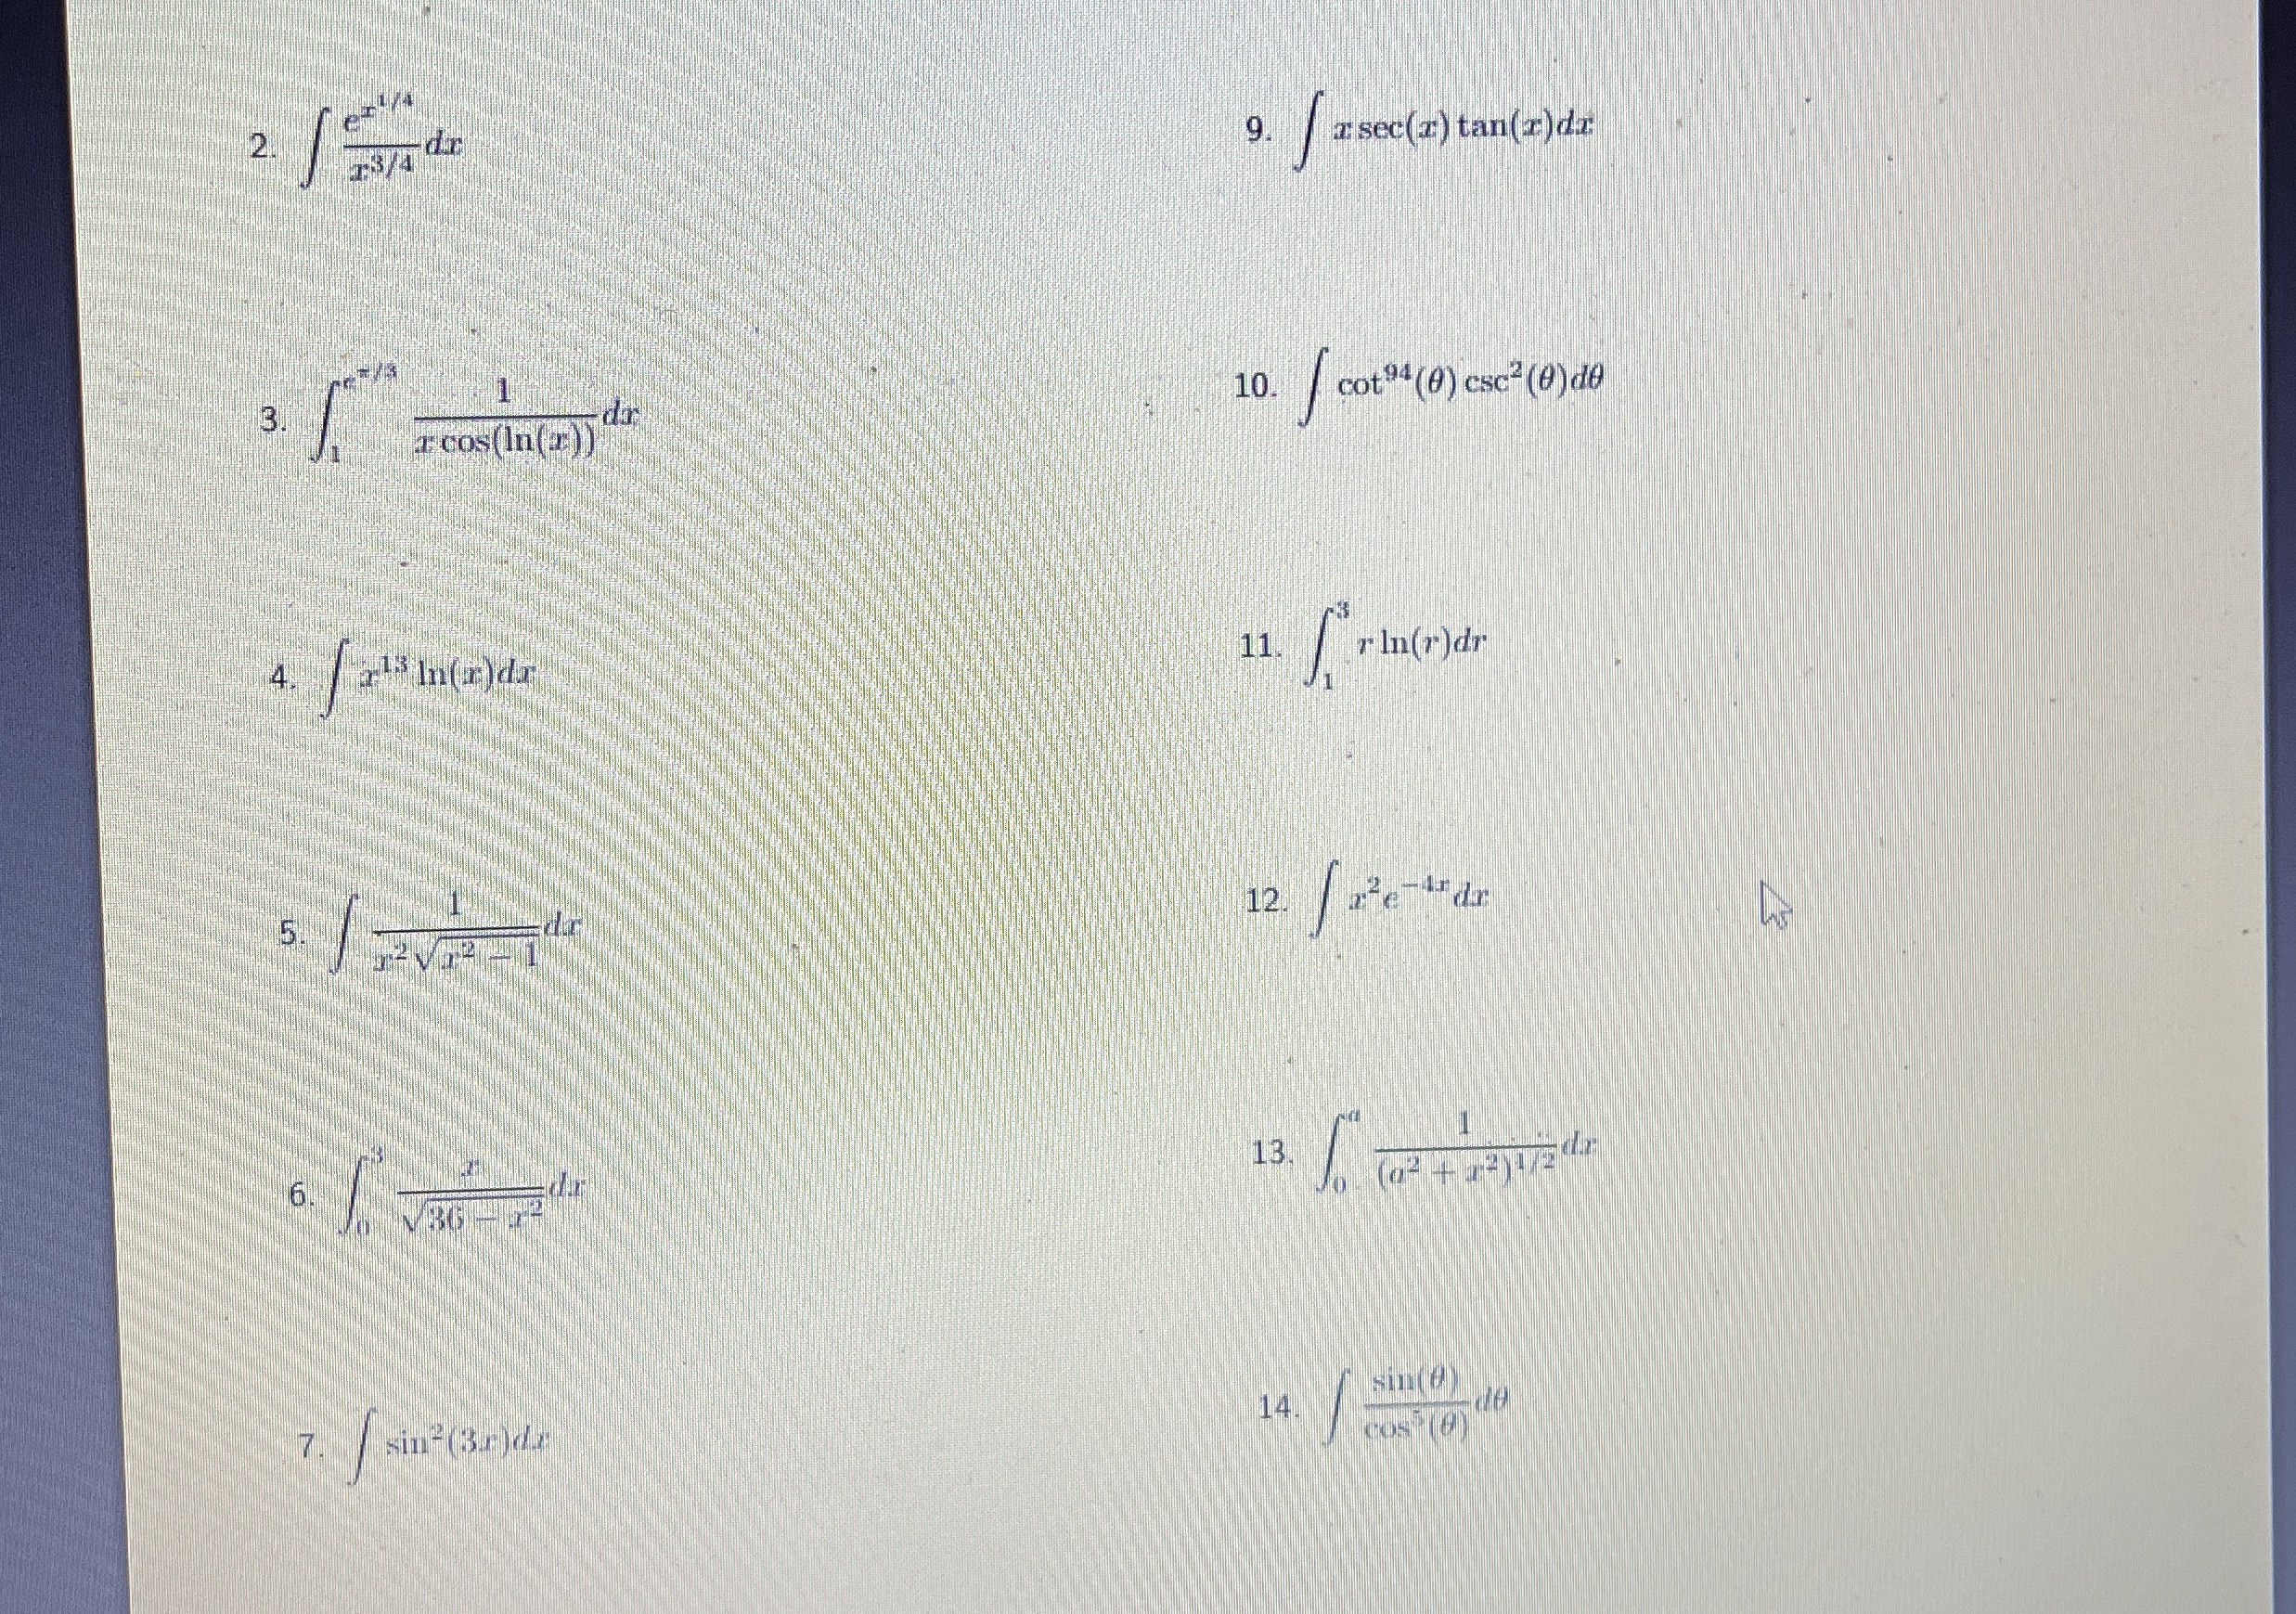 2. ∫ e^{x^{1/4}} / x^{3/4} dx
3. ∫_1^{e^{π/3}} 1 / (x cos(ln(x))) dx
4. ∫ x^{13} ln(x)dx
5. ∫ 1 / (x^2 √(x^2 − 1)) dx
6. ∫_0^3 x / √(36 − x^2) dx
7. ∫ sin^2(3x)dx
9. ∫ x sec(x) tan(x)dx
10. ∫ cot^{94}(θ) csc^2(θ)dθ
11. ∫_1^3 r ln(r)dr
12. ∫ x^2 e^{−4x} dx
13. ∫_0^a 1 / (a^2 + x^2)^{1/2} dx
14. ∫ sin(θ) / cos^5(θ) dθ